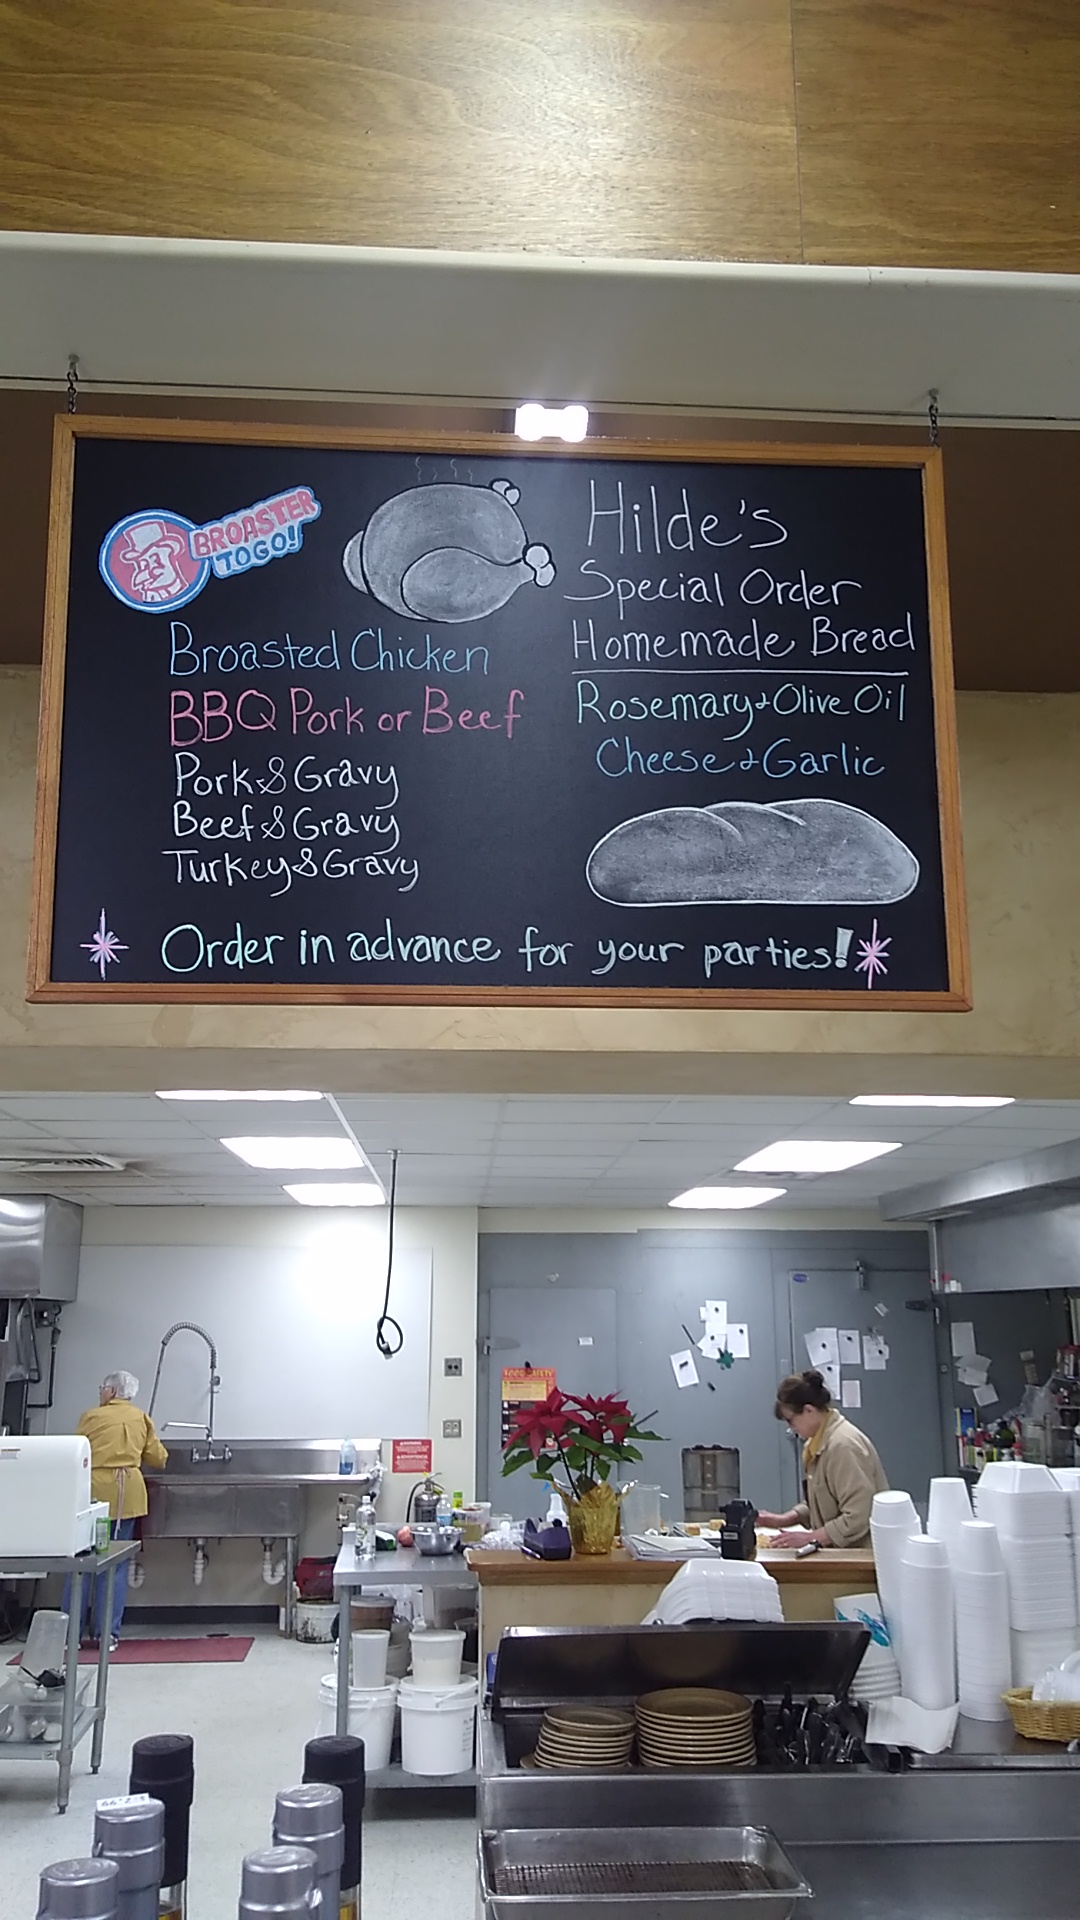 BROASTER
TO GO!
Broasted Chicken
BBQ Pork or Beef
Pork & Gravy
Beef & Gravy
Turkey & Gravy
Hilde's
Special Order
Homemade Bread
Rosemary & Olive Oil
Cheese & Garlic
Order in advance for your parties!